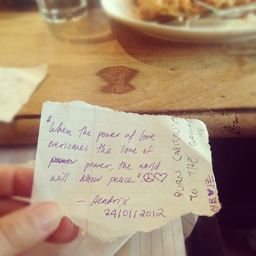 "When the power of love
overcomes the love of
power, the world
will know peace"
- Hendrix
24/01/2012
BURN CAPITALISM
TO THE GROUND